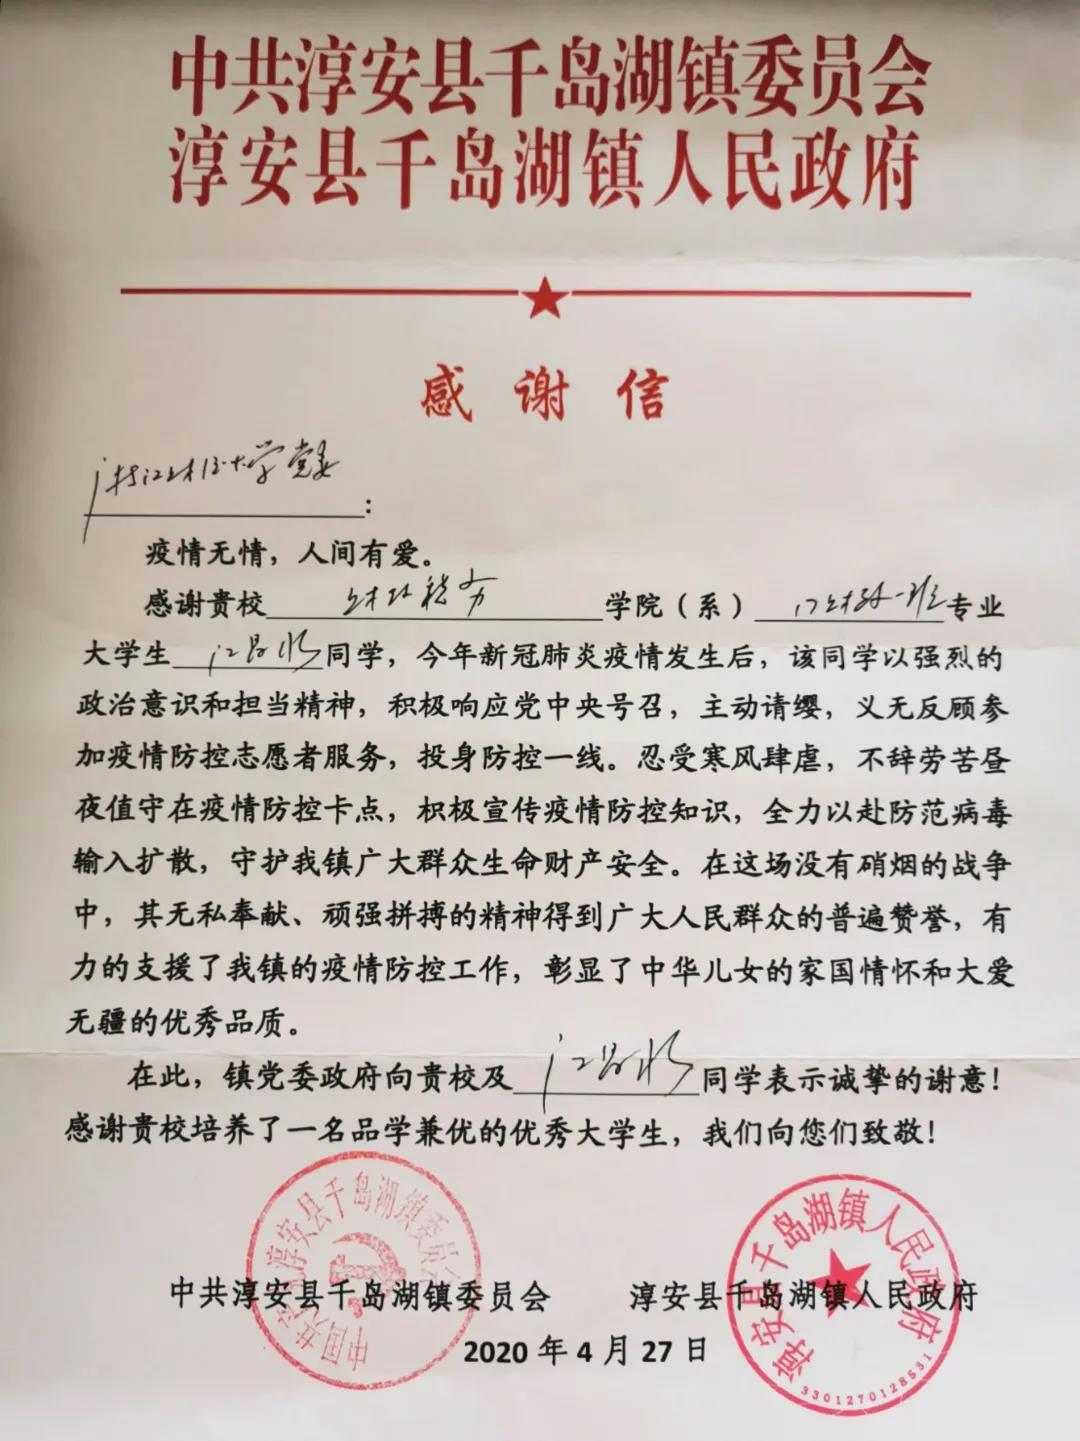 中共淳安县千岛湖镇委员会
淳安县千岛湖镇人民政府
感谢信
浙江财经大学党委：
疫情无情，人间有爱。
感谢贵校财政税务学院（系）17财政一班专业
大学生江昂帆同学，今年新冠肺炎疫情发生后，该同学以强烈的
政治意识和担当精神，积极响应党中央号召，主动请缨，义无反顾参
加疫情防控志愿者服务，投身防控一线。忍受寒风肆虐，不辞劳苦昼
夜值守在疫情防控卡点，积极宣传疫情防控知识，全力以赴防范病毒
输入扩散，守护我镇广大群众生命财产安全。在这场没有硝烟的战争
中，其无私奉献、顽强拼搏的精神得到广大人民群众的普遍赞誉，有
力的支援了我镇的疫情防控工作，彰显了中华儿女的家国情怀和大爱
无疆的优秀品质。
在此，镇党委政府向贵校及同学表示诚挚的谢意！
感谢贵校培养了一名品学兼优的优秀大学生，我们向您们致敬！
中国共产党淳安县千岛湖镇委员会
淳安县千岛湖镇人民政府
3301270128531
中共淳安县千岛湖镇委员会 淳安县千岛湖镇人民政府
2020年4月27日